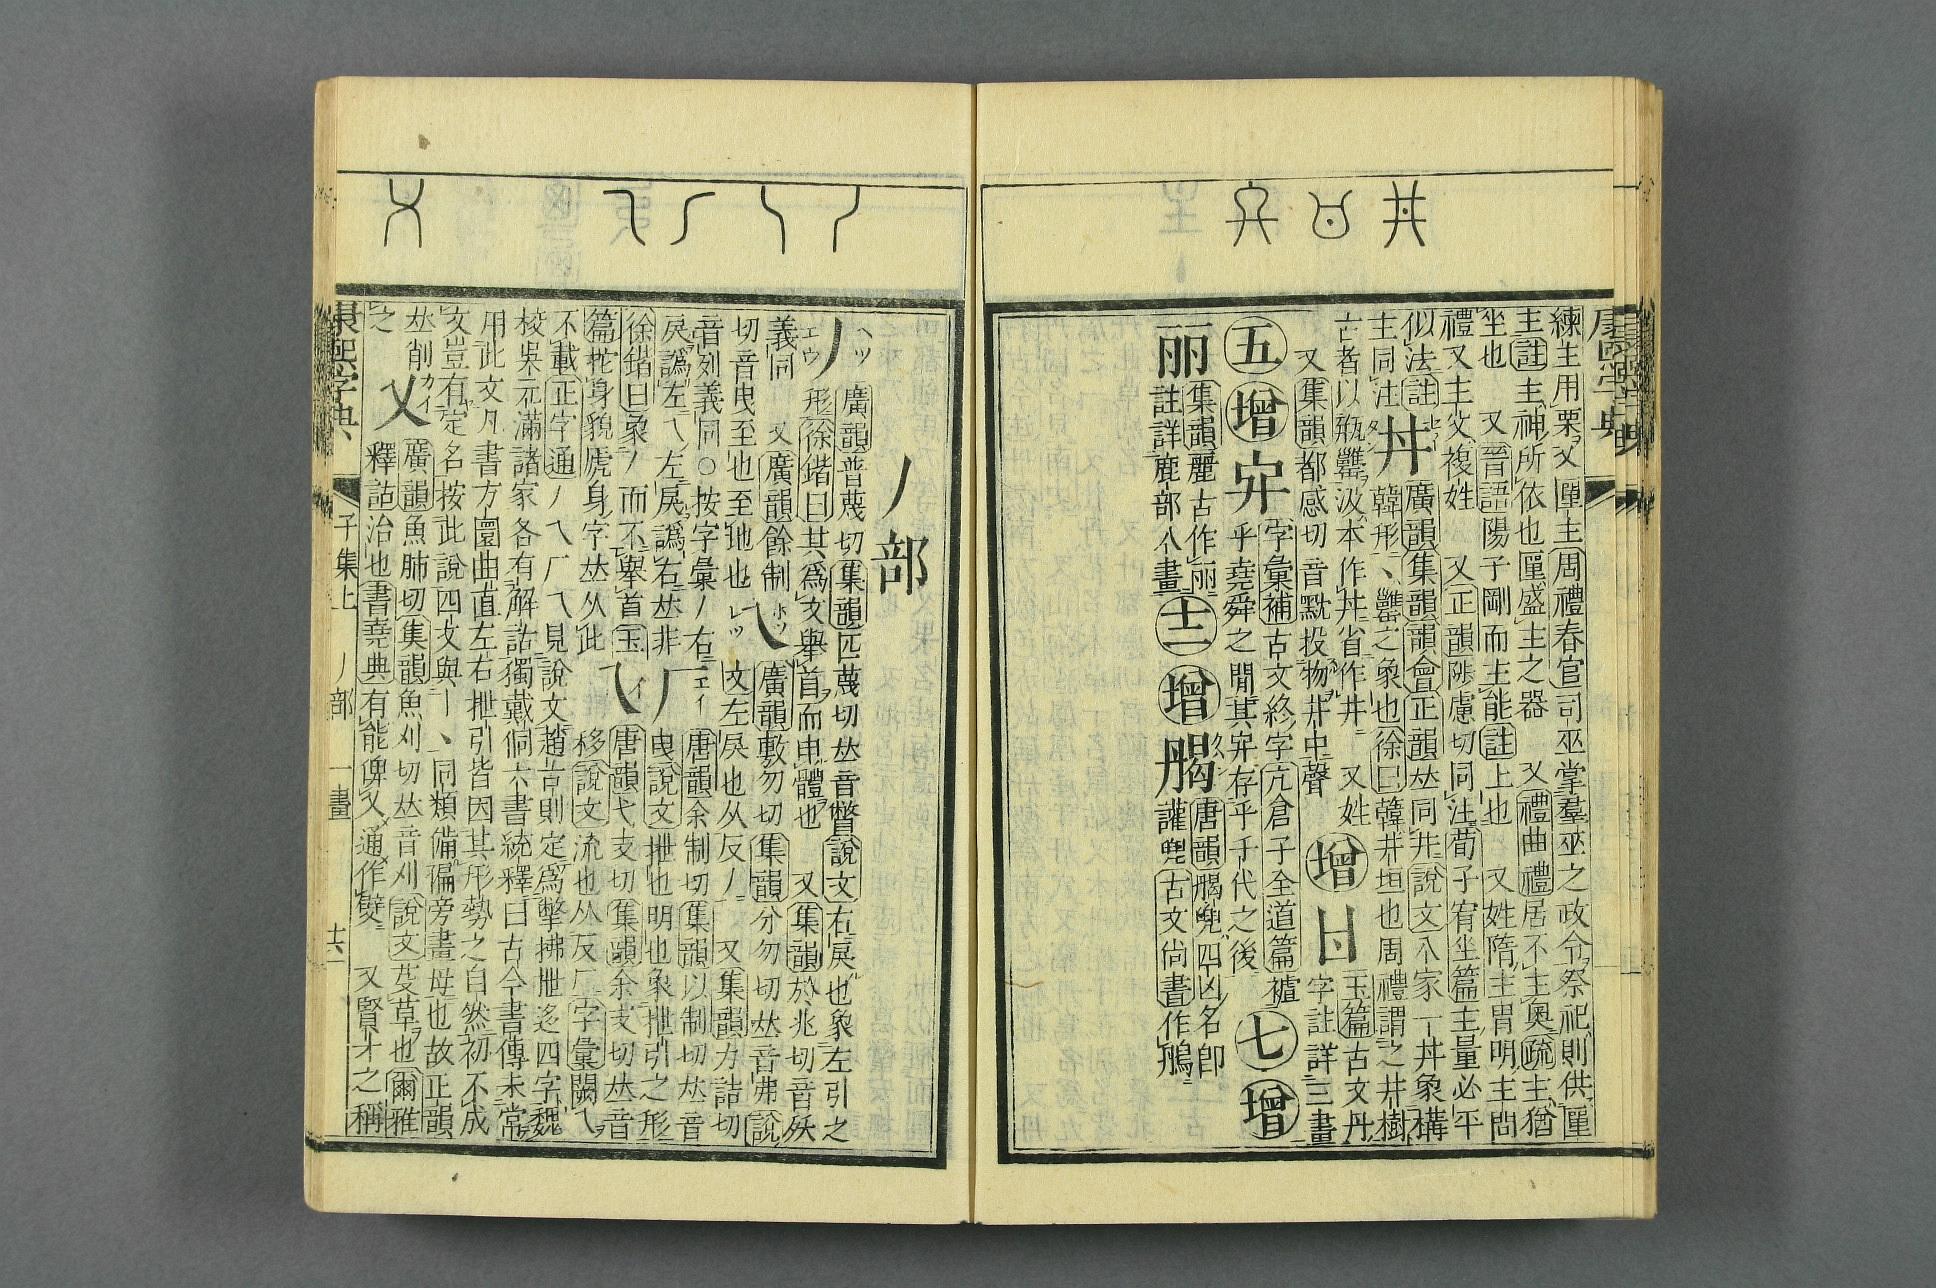 康熙字典
練主用栗又匰主周禮春官司巫掌羣巫之政令祭祀則供匰
主註主神所依也匰盛主之器 又禮曲禮居不主奧疏主猶
坐也 又晉語陽子剛而主能註上也 又姓隋主胄明主問
禮又主父複姓 又正韻陟慮切同注荀子宥坐篇主量必平
似法註 丼 廣韻集韻韻會正韻𠀤同井說文八家一丼象構
主同注 韓形丶罋之象也徐曰韓井垣也周禮謂之井樹
亡者以瓶罋汲本作丼省作井 又姓
增 玉篇古文丹
字註詳三畫
又集韻都感切音黕投物井中聲
五 增 字彙補古文終字亢倉子全道篇
乎堯舜之閒其存乎千代之後
七 增
丽 集韻麗古作丽
註詳鹿部八畫
十二 增 唐韻四凶名卽
讙兜古文尚書作
丿部
丿 廣韻普蔑切集韻匹蔑切𠀤音瞥說文右戾也象左引之
形徐鍇曰其爲文舉首而申體也 又集韻於兆切音殀
義同 又廣韻餘制
切音曳至也至地也
乀 廣韻敷勿切集韻分勿切𠀤音弗說
文左戾也从反丿 又集韻力詰切
音列義同○按字彙丿右
戾譌左乀左戾譌右𠀤非
𠂆 唐韻余制切集韻以制切𠀤音
曳說文抴也明也象抴引之形
徐鍇曰象丿而不舉首玉
篇拕身貌虒身字𠀤从此
乁 唐韻弋支切集韻余支切𠀤音
移說文流也从反𠂆字彙闕乁
不載正字通丿乀𠂆乁見說文趙古則定爲擎拂抴迻四字魏
校吳元滿諸家各有解詁獨戴侗六書統釋曰古今書傳未常
用此文凡書方圜曲直左右抴引皆因其形勢之自然初不成
文豈有定名按此說四文與丨丶同類備偏旁畫母也故正韻
𠀤削
之
乂 廣韻魚肺切集韻魚刈切𠀤音刈說文芟草也爾雅
釋詁治也書堯典有能俾乂通作嬖 又賢才之稱
康熙字典 子集上 丿部 一畫